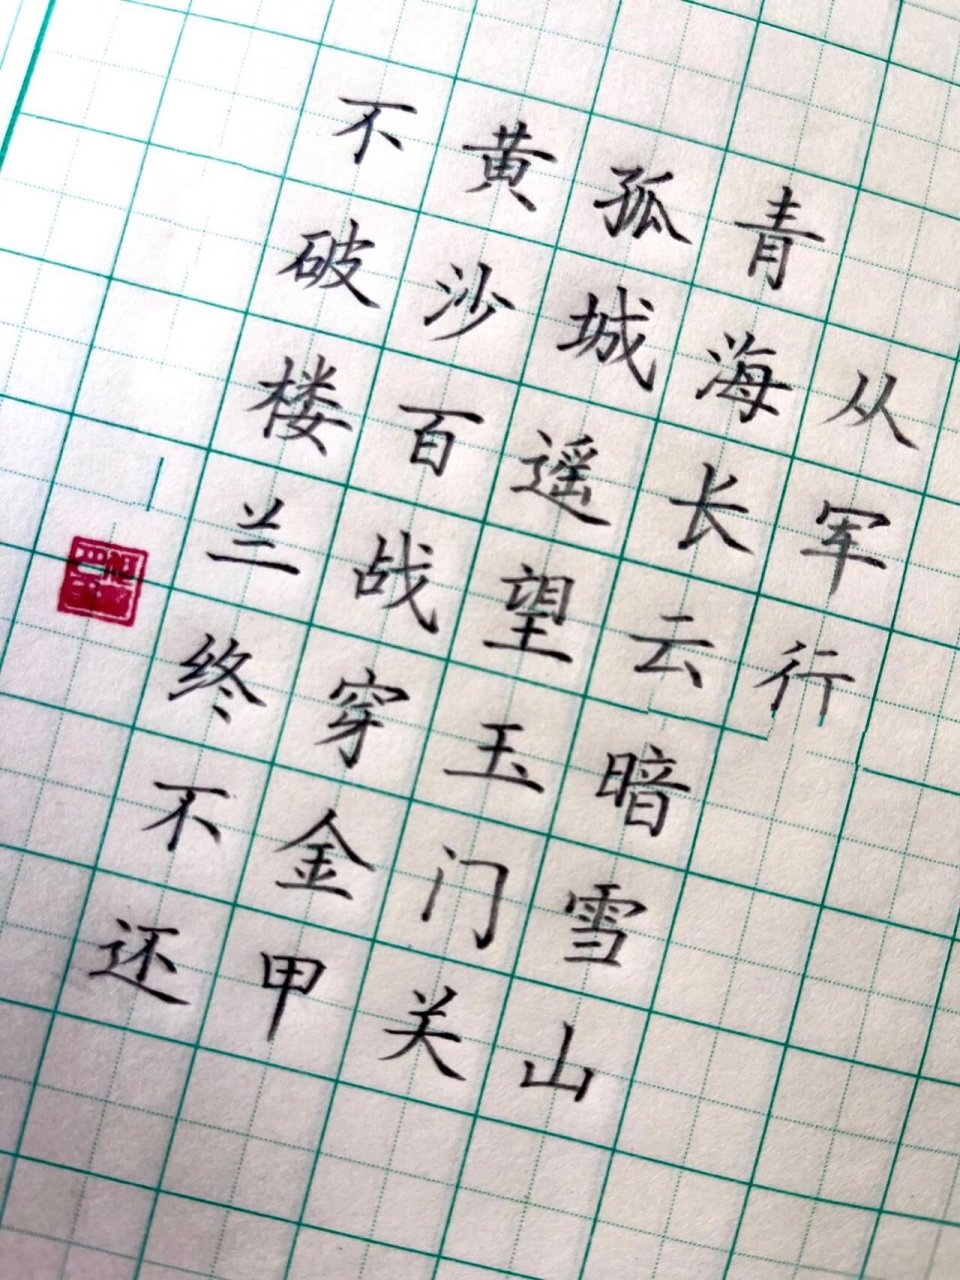 从军行
青海长云暗雪山
孤城遥望玉门关
黄沙百战穿金甲
不破楼兰终不还